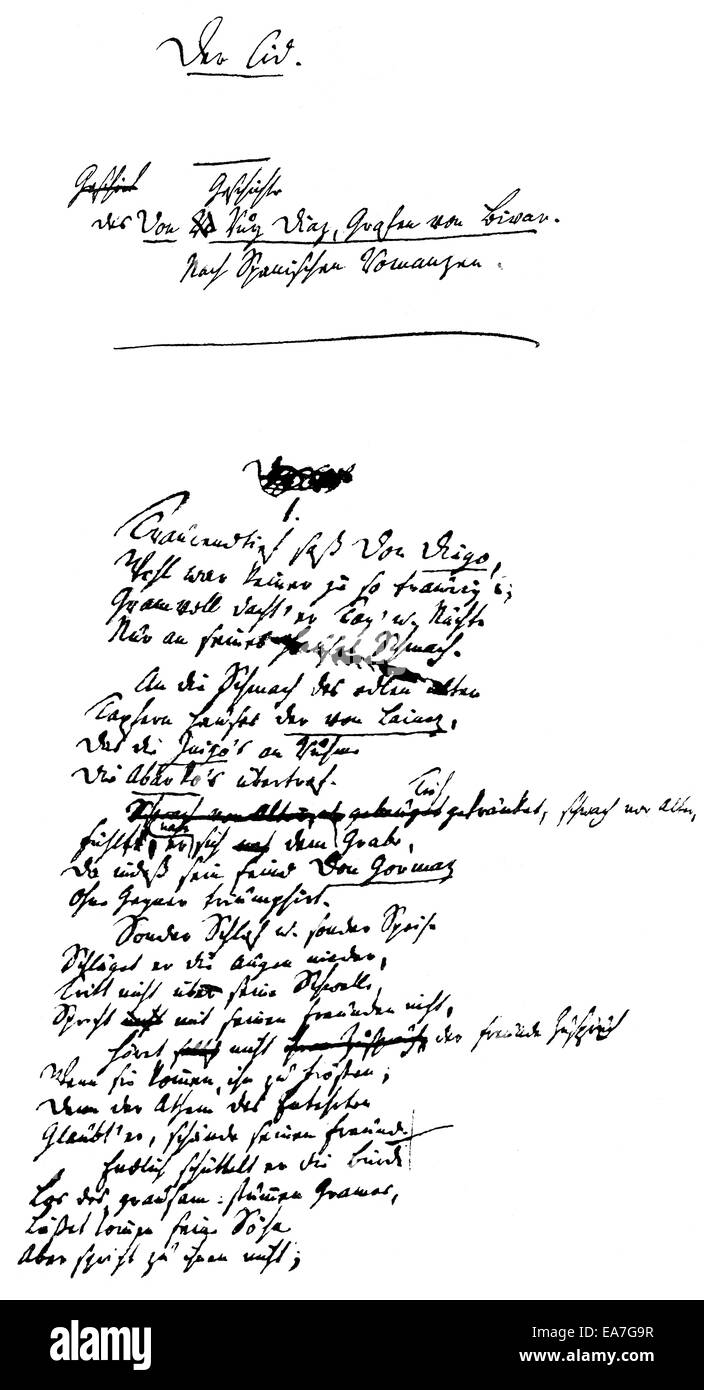 Der Cid.
Geschicht Geschichte
des Don Ruy Diaz, Grafen von Bivar.
Nach Spanischen Romanzen.
1.
Traurendtief saß Don Diego,
Wohl war keiner je so traurig;
Gramvoll dacht' er Tag' u. Nächte
Nur an seines Schmach.
An die Schmach des edlen alten
Tapfern Hauses der von Lainez,
Das die Inigo's an Ruhme
Die Abarko's übertraf.
Tief
Schwach vor Alter, gebeuget gekränket, schwach vor Alter,
nahe
Fühlt er sich dem Grabe,
Da indeß sein Feind Don Gormaz
Ohne Gegner triumphirt.
Sonder Schlaf u. sonder Speise
Schläget er die Augen nieder,
Tritt nicht über seine Schwelle,
Spricht nicht mit seinen Freunden nicht,
Höret nicht ihren Zuspruch der Freunde Zuspruch
Wenn sie kommen, ihn zu trösten;
Denn der Athem des Entehrten
Glaubt' er, schände seinen Freund.
Endlich schüttelt er die Bürde
Los des grausam-stummen Grames,
Lässet kommen seine Söhne
Aber spricht zu ihnen nicht;
alamy
alamy stock photo
EA7G9R
www.alamy.com